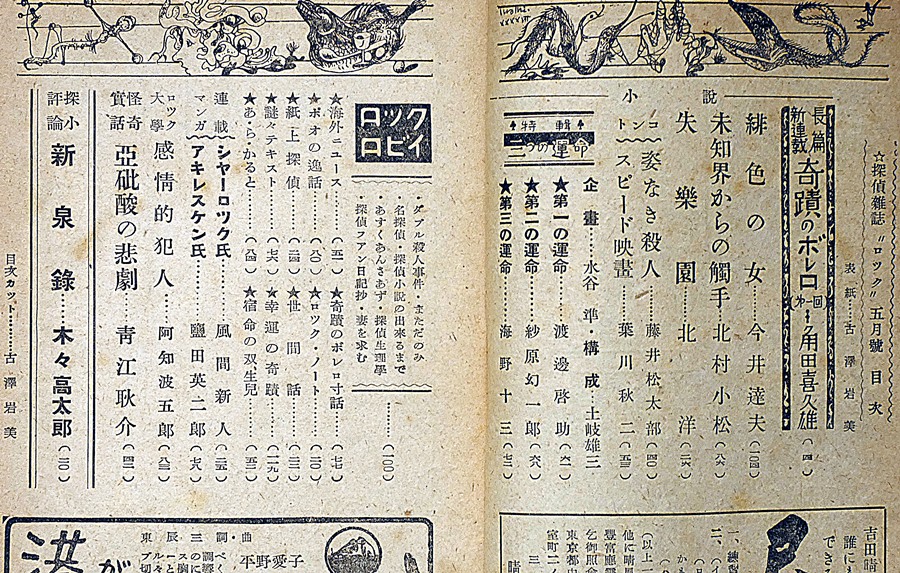 ☆探偵雜誌〝ロツク〟五月號 目次
表紙…古澤岩美
長篇新連載 奇蹟のボレロ 第一回 角田喜久雄(四)
小説
緋色の女…今井達夫(一〇四)
未知界からの觸手…北村小松(八六)
失樂園…北洋(二六)
コント
姿なき殺人…藤井松太郎(四〇)
スピード映畫…葉川秋二(五三)
特輯
三つの運命
企畫…水谷準・構成…土岐雄三
★第一の運命…渡邊啓助(六一)
★第二の運命…紗原幻一郎(六八)
★第三の運命…海野十三(七二)
ロック ロビイ
・ダブル殺人事件・まただのみ
・名探偵・探偵小説の出來るまで
・あすくあんさあず・探偵生理學
・探偵フアン日記抄 妻を求む
(一〇〇)
★海外ニュース…(五一)★奇蹟のボレロ寸話…(七七)
★ポオの逸話…(六〇)★ロツク・ノート…(一一〇)
★紙上探偵…(二四)★世間話…(三三)
★謎々テキスト…(七六)★幸運の奇蹟…(一一九)
★あ・ら・かると…(八四)★宿命の双生兒…(五二)
連載マンガ
シヤーロツク氏…風間新人(三五)
アキレスケン氏…鹽田英二郎(七八)
ロツク大學 感情的犯人…阿知波五郎(八三)
怪奇實話 亞砒酸の悲劇…靑江耿介(四二)
探小評論 新泉錄…木々高太郎(二〇)
目次カット…古澤岩美
吉田晴
誰にも
でき
一、練習
二、
(以上
他に晴風
豐富應
乞御照會
東京都中
室町二ノ
曲
平野愛子
洪
が